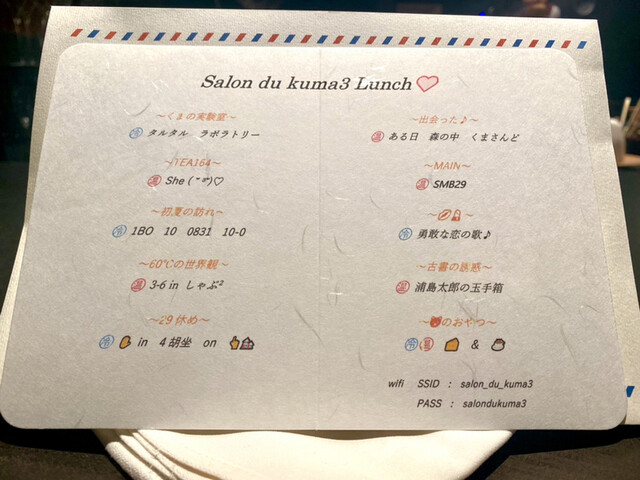 Salon du kuma3 Lunch
～くまの実験室～
冷 タルタル ラボラトリー
～TEA164～
温 She ( ˘ ³˘)♡
～初夏の訪れ～
冷 1BO 10 0831 10-0
～60℃の世界観～
温 3-6 in しゃぶ²
～29休め～
冷 in 4胡坐 on
～出会った♪～
温 ある日 森の中 くまさんど
～MAIN～
温 SMB29
冷 勇敢な恋の歌♪
～古書の誘惑～
温 浦島太郎の玉手箱
～🐻のおやつ～
冷 温 &
wifi SSID : salon_du_kuma3
PASS : salondukuma3